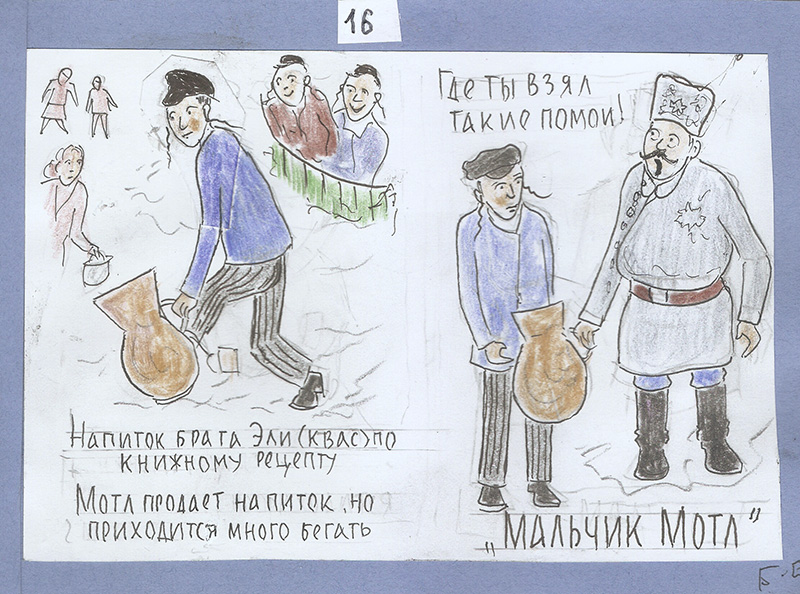 16
Где ты взял
такие помои!
Напиток брата Эли(квас)по
книжному рецепту
Мотл продает напиток, но
приходится много бегать
„Мальчик Мотл”